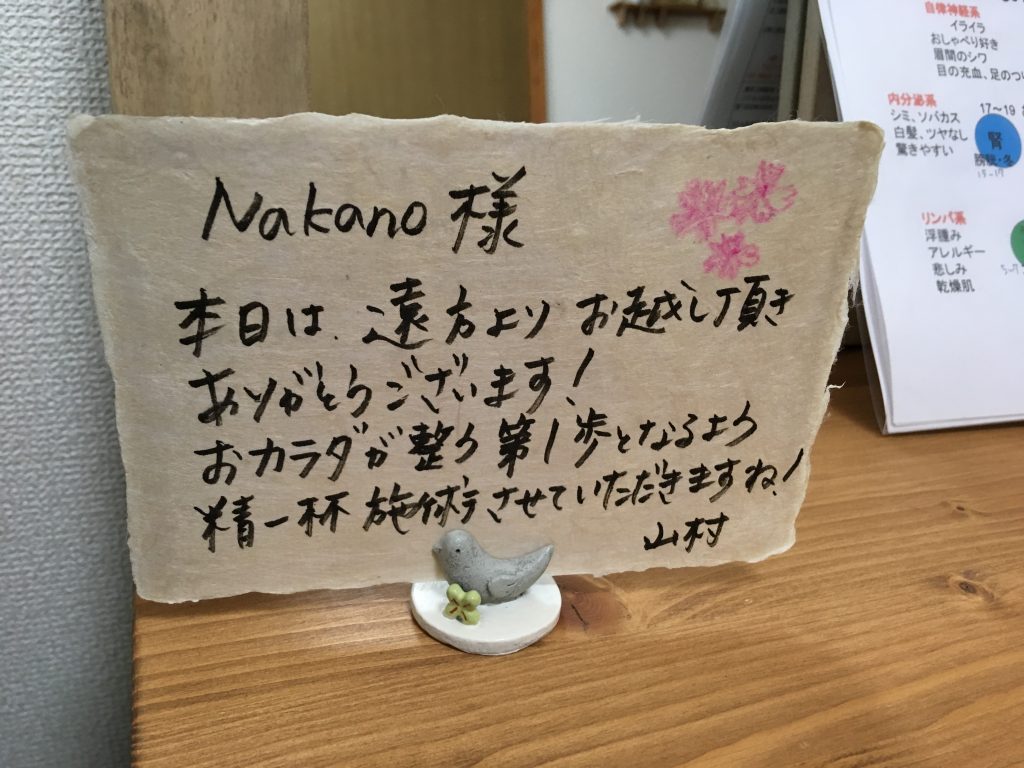 Nakano 様
本日は、遠方より お越し頂き
ありがとうございます!
おカラダが整う第1歩となるよう
精一杯 施術させていただきますね!
山村
自律神経系
イライラ
おしゃべり好き
眉間のシワ
目の充血、足のつ
内分泌系
シミ、ソバカス
白髪、ツヤなし
驚きやすい
17〜19
腎
膀胱・冬
15-17
リンパ系
浮腫み
アレルギー
悲しみ
乾燥肌